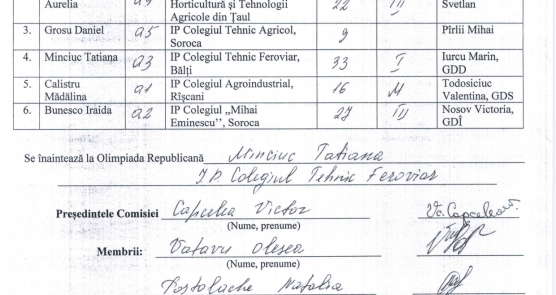 Aurelia a4 Horticultură și Tehnologii Agricole din Țaul 22 III Svetlan
3. Grosu Daniel a5 IP Colegiul Tehnic Agricol, Soroca 9 Pîrlii Mihai
4. Minciuc Tatiana a3 IP Colegiul Tehnic Feroviar, Bălți 33 I Iurcu Marin, GDD
5. Calistru Mădălina a1 IP Colegiul Agroindustrial, Rîșcani 16 M Todosiciuc Valentina, GDS
6. Bunesco Iraida a2 IP Colegiul ,,Mihai Eminescu'', Soroca 27 III Nosov Victoria, GDÎ
Se înaintează la Olimpiada Republicană Minciuc Tatiana
IP Colegiul Tehnic Feroviar
Președintele Comisiei Capcelea Victor
(Nume, prenume)
Membrii: Vatavu Olesea
(Nume, prenume)
Postolache Natalia